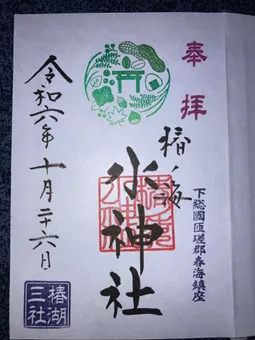 奉拝
下総國匝瑳郡春海鎮座
椿ノ海
水神社
令和六年十月二十六日
椿湖
三社